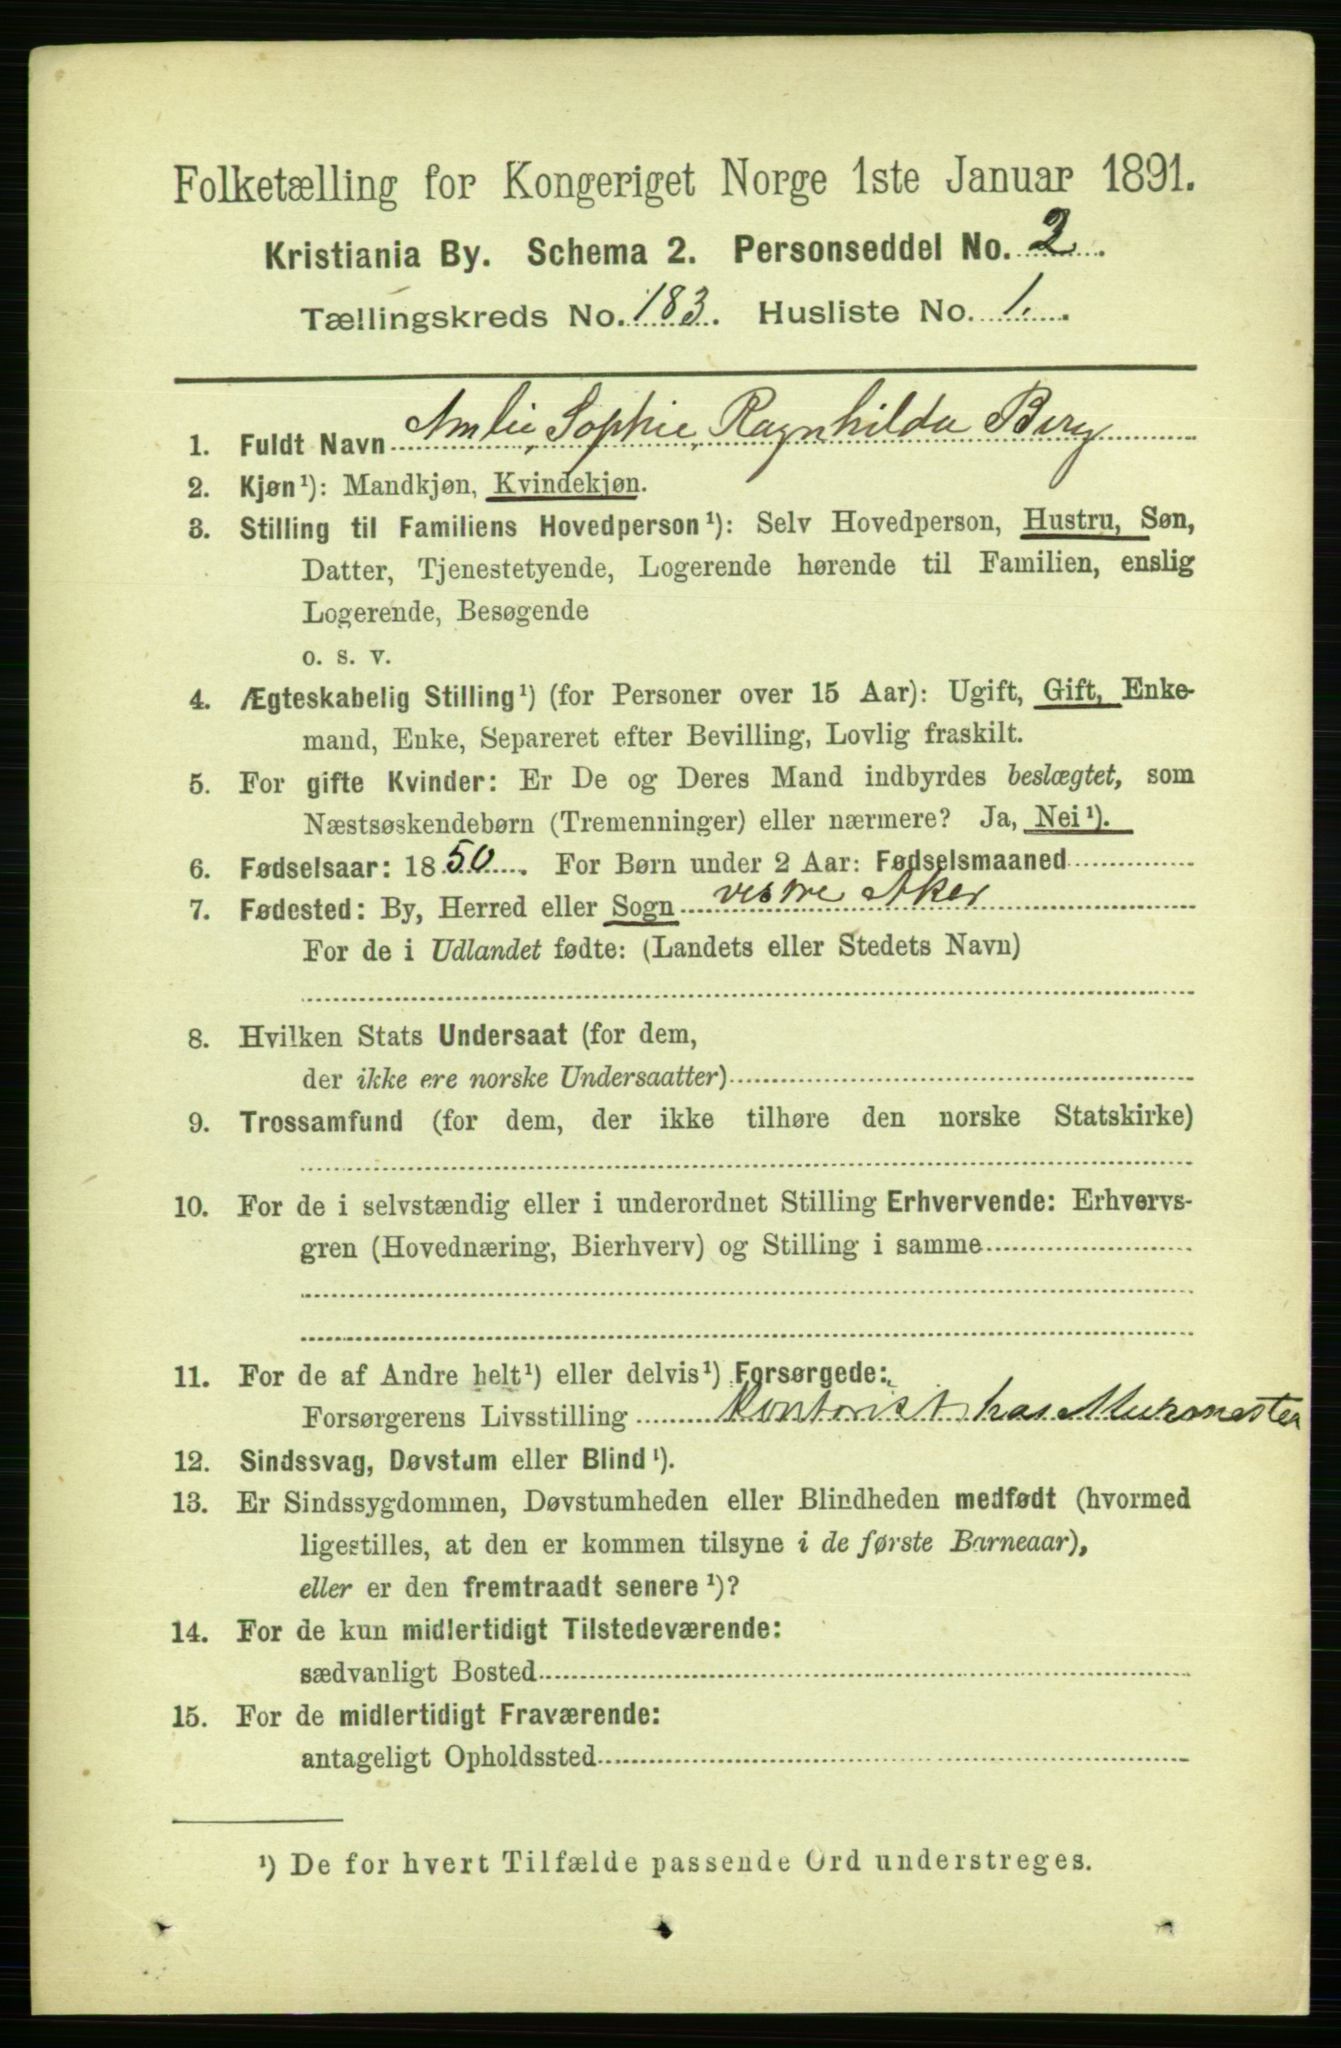 Folketælling for Kongeriget Norge 1ste Januar 1891.
Kristiania By. Schema 2. Personseddel No. 2.
Tællingskreds No. 183. Husliste No. 1.
1. Fuldt Navn Amlie, Sophie, Ragnhilda Berg
2. Kjøn¹): Mandkjøn, Kvindekjøn.
3. Stilling til Familiens Hovedperson¹): Selv Hovedperson, Hustru, Søn,
Datter, Tjenestetyende, Logerende hørende til Familien, enslig
Logerende, Besøgende
o. s. v.
4. Ægteskabelig Stilling¹) (for Personer over 15 Aar): Ugift, Gift, Enke-
mand, Enke, Separeret efter Bevilling, Lovlig fraskilt.
5. For gifte Kvinder: Er De og Deres Mand indbyrdes beslægtet, som
Næstsøskendebørn (Tremenninger) eller nærmere? Ja, Nei¹).
6. Fødselsaar: 1850. For Børn under 2 Aar: Fødselsmaaned
7. Fødested: By, Herred eller Sogn vestre Aker
For de i Udlandet fødte: (Landets eller Stedets Navn)
8. Hvilken Stats Undersaat (for dem,
der ikke ere norske Undersaatter)
9. Trossamfund (for dem, der ikke tilhøre den norske Statskirke)
10. For de i selvstændig eller i underordnet Stilling Erhvervende: Erhvervs-
gren (Hovednæring, Bierhverv) og Stilling i samme
11. For de af Andre helt¹) eller delvis¹) Forsørgede:
Forsørgerens Livsstilling Kontorist hos Murmester
12. Sindssvag, Døvstum eller Blind¹).
13. Er Sindssygdommen, Døvstumheden eller Blindheden medfødt (hvormed
ligestilles, at den er kommen tilsyne i de første Barneaar),
eller er den fremtraadt senere¹)?
14. For de kun midlertidigt Tilstedeværende:
sædvanligt Bosted
15. For de midlertidigt Fraværende:
antageligt Opholdssted
¹) De for hvert Tilfælde passende Ord understreges.